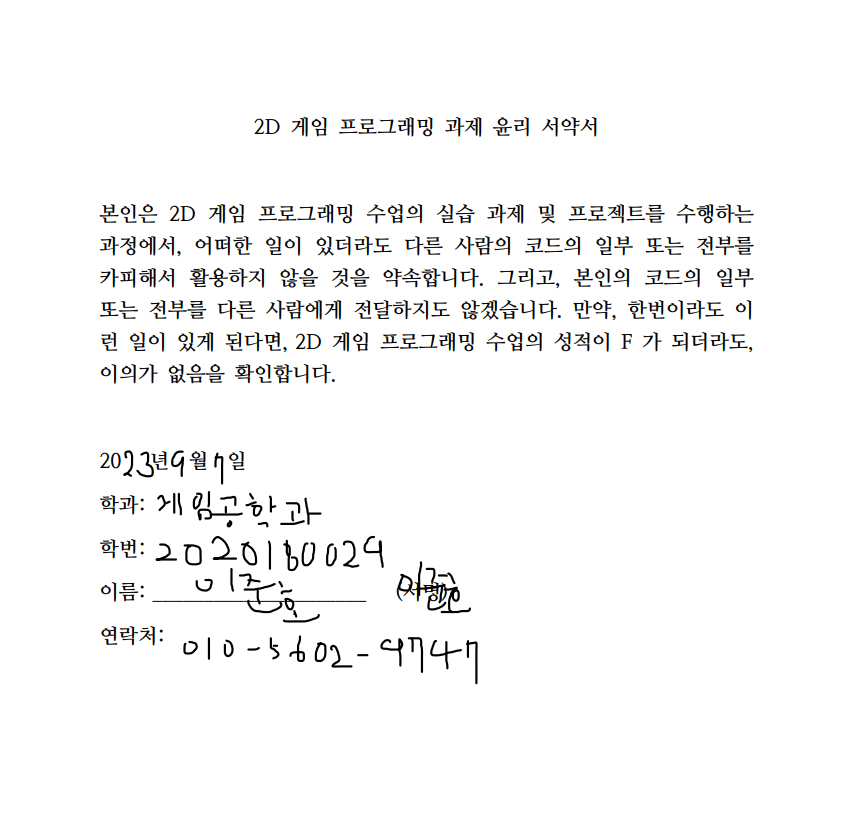 2D 게임 프로그래밍 과제 윤리 서약서
본인은 2D 게임 프로그래밍 수업의 실습 과제 및 프로젝트를 수행하는
과정에서, 어떠한 일이 있더라도 다른 사람의 코드의 일부 또는 전부를
카피해서 활용하지 않을 것을 약속합니다. 그리고, 본인의 코드의 일부
또는 전부를 다른 사람에게 전달하지도 않겠습니다. 만약, 한번이라도 이
런 일이 있게 된다면, 2D 게임 프로그래밍 수업의 성적이 F 가 되더라도,
이의가 없음을 확인합니다.
2023년 9월 7일
학과: 게임공학과
학번: 2020180029
이름: 이준호 (서명) 이준호
연락처: 010-5602-9747